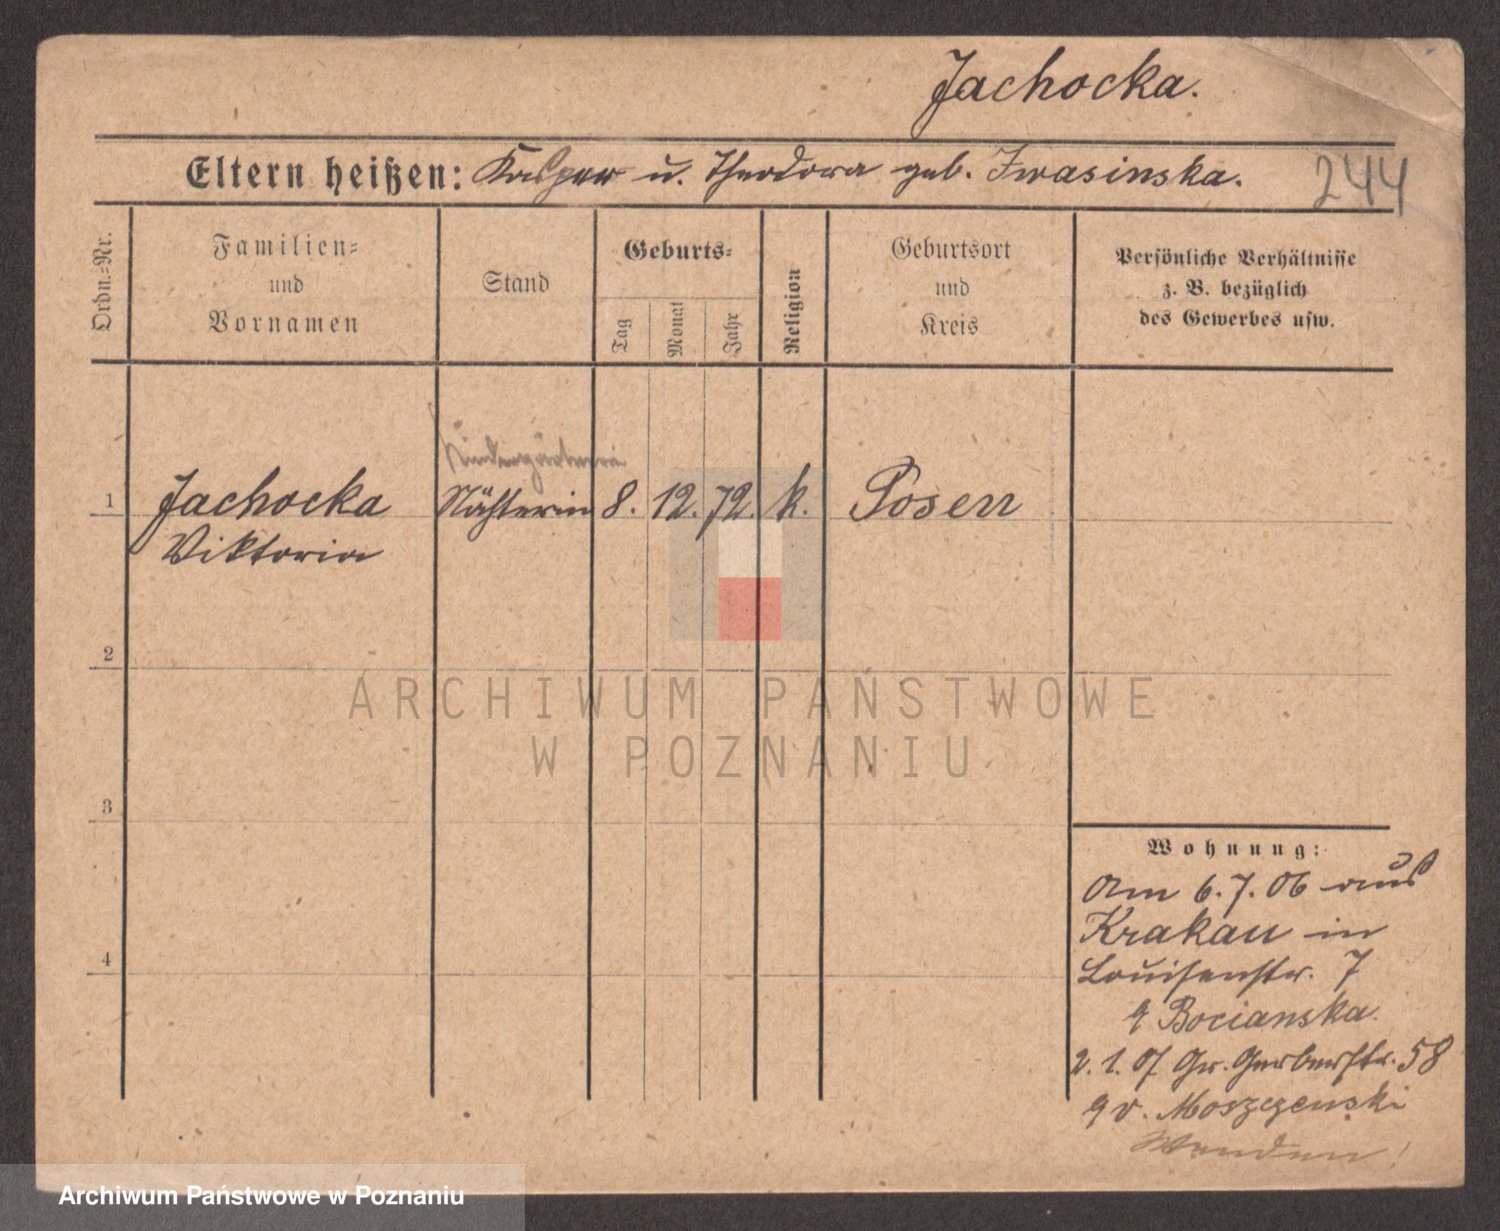 Jachocka.
Eltern heißen: Kasper u. Theodora geb. Iwasinska.
244
Ordn.-Nr.
Familien-
und
Vornamen
Stand
Geburts-
Tag
Monat
Jahr
Religion
Geburtsort
und
Kreis
Persönliche Verhältnisse
z. B. bezüglich
des Gewerbes usw.
Kindergärtnerin
1 Jachocka Nähterin 8. 12. 72. k. Posen
Viktoria
2
3
4
Wohnung:
Am 6.7.06 aus
Krakau in
Louisenstr. 7
Bocianska.
2.1.07 Gr. Gerberstr. 58
v. Moszczenski
Wenden!
ARCHIWUM PAŃSTWOWE
W POZNANIU
Archiwum Państwowe w Poznaniu